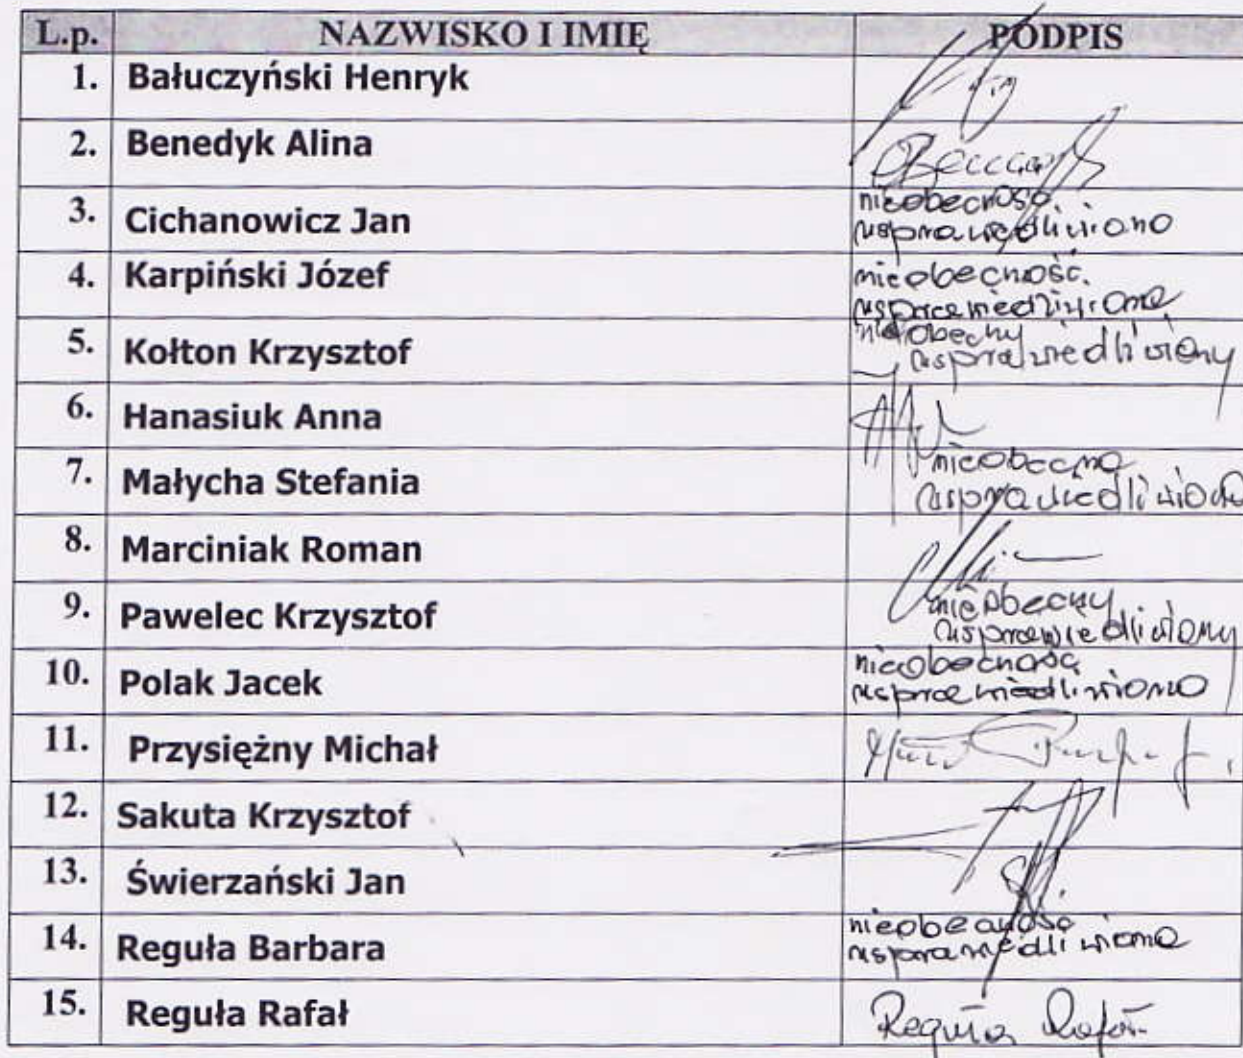 L.p. NAZWISKO I IMIĘ PODPIS
1. Bałuczyński Henryk
2. Benedyk Alina
3. Cichanowicz Jan nieobecność
usprawiedliwiona
4. Karpiński Józef nieobecność.
usprawiedliwiona
5. Kołton Krzysztof nieobecny
usprawiedliwiony
6. Hanasiuk Anna
7. Małycha Stefania nieobecna
usprawiedliwiona
8. Marciniak Roman
9. Pawelec Krzysztof nieobecny
usprawiedliwiony
10. Polak Jacek nieobecność
usprawiedliwiona
11. Przysiężny Michał
12. Sakuta Krzysztof
13. Świerzański Jan
14. Reguła Barbara nieobecność
usprawiedliwiona
15. Reguła Rafał Reguła Rafał